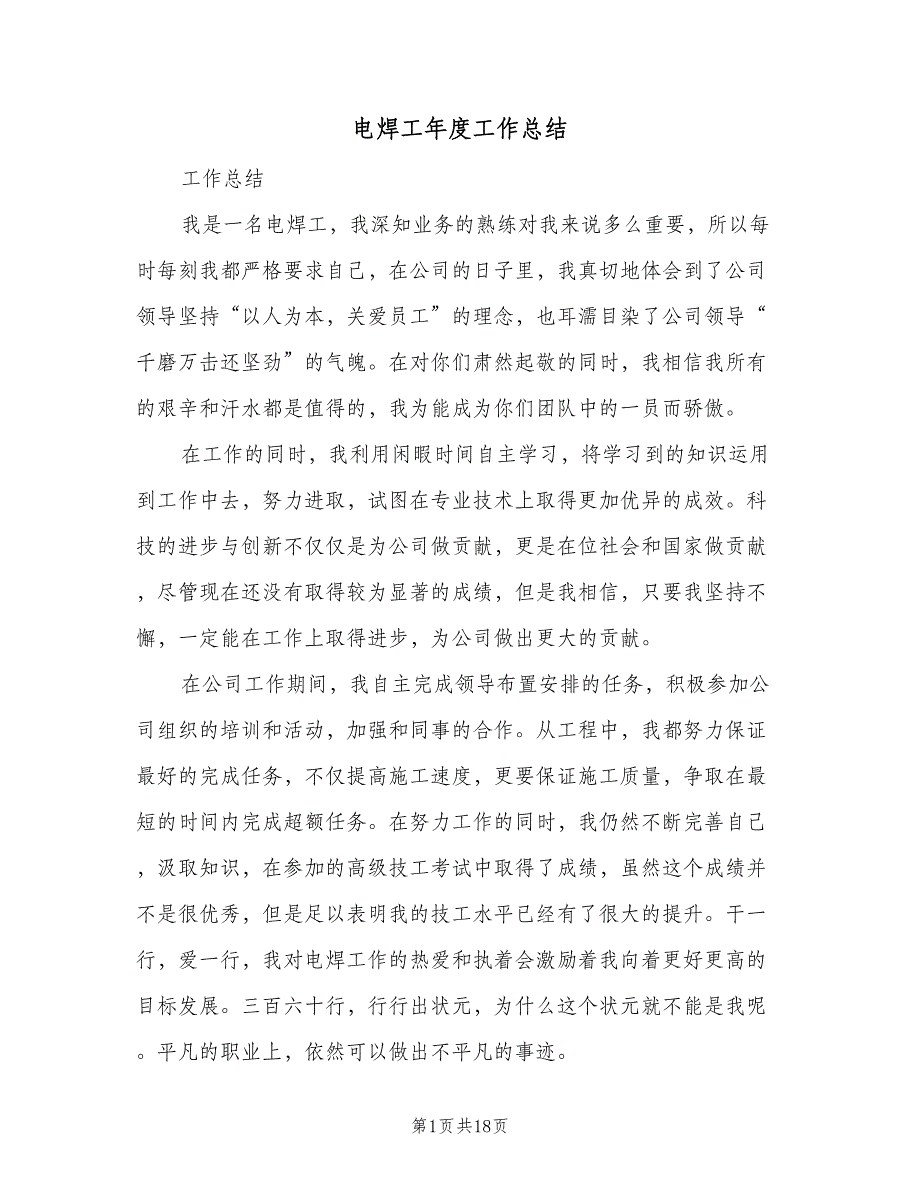 电焊工年度工作总结
工作总结
我是一名电焊工，我深知业务的熟练对我来说多么重要，所以每
时每刻我都严格要求自己，在公司的日子里，我真切地体会到了公司
领导坚持“以人为本，关爱员工”的理念，也耳濡目染了公司领导“
千磨万击还坚劲”的气魄。在对你们肃然起敬的同时，我相信我所有
的艰辛和汗水都是值得的，我为能成为你们团队中的一员而骄傲。
在工作的同时，我利用闲暇时间自主学习，将学习到的知识运用
到工作中去，努力进取，试图在专业技术上取得更加优异的成效。科
技的进步与创新不仅仅是为公司做贡献，更是在位社会和国家做贡献
，尽管现在还没有取得较为显著的成绩，但是我相信，只要我坚持不
懈，一定能在工作上取得进步，为公司做出更大的贡献。
在公司工作期间，我自主完成领导布置安排的任务，积极参加公
司组织的培训和活动，加强和同事的合作。从工程中，我都努力保证
最好的完成任务，不仅提高施工速度，更要保证施工质量，争取在最
短的时间内完成超额任务。在努力工作的同时，我仍然不断完善自己
，汲取知识，在参加的高级技工考试中取得了成绩，虽然这个成绩并
不是很优秀，但是足以表明我的技工水平已经有了很大的提升。干一
行，爱一行，我对电焊工作的热爱和执着会激励着我向着更好更高的
目标发展。三百六十行，行行出状元，为什么这个状元就不能是我呢
。平凡的职业上，依然可以做出不平凡的事迹。
第1页共18页